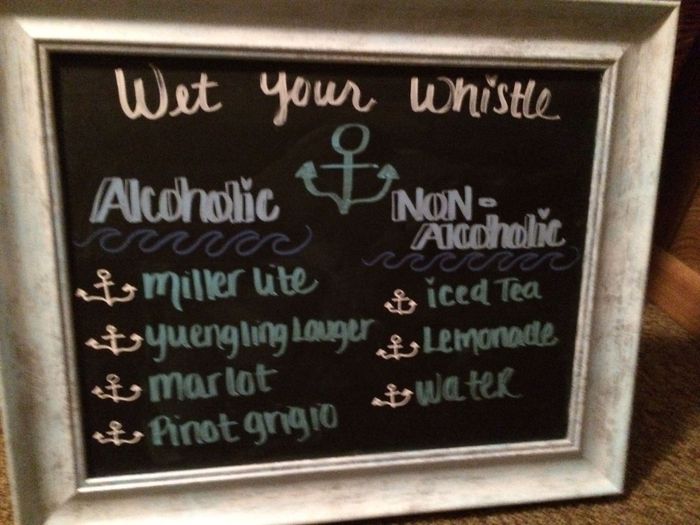 Wet your Whistle
Alcoholic
miller lite
yuengling Lauger
marlot
Pinot grigio
NON-
Alcoholic
iced Tea
Lemonade
water